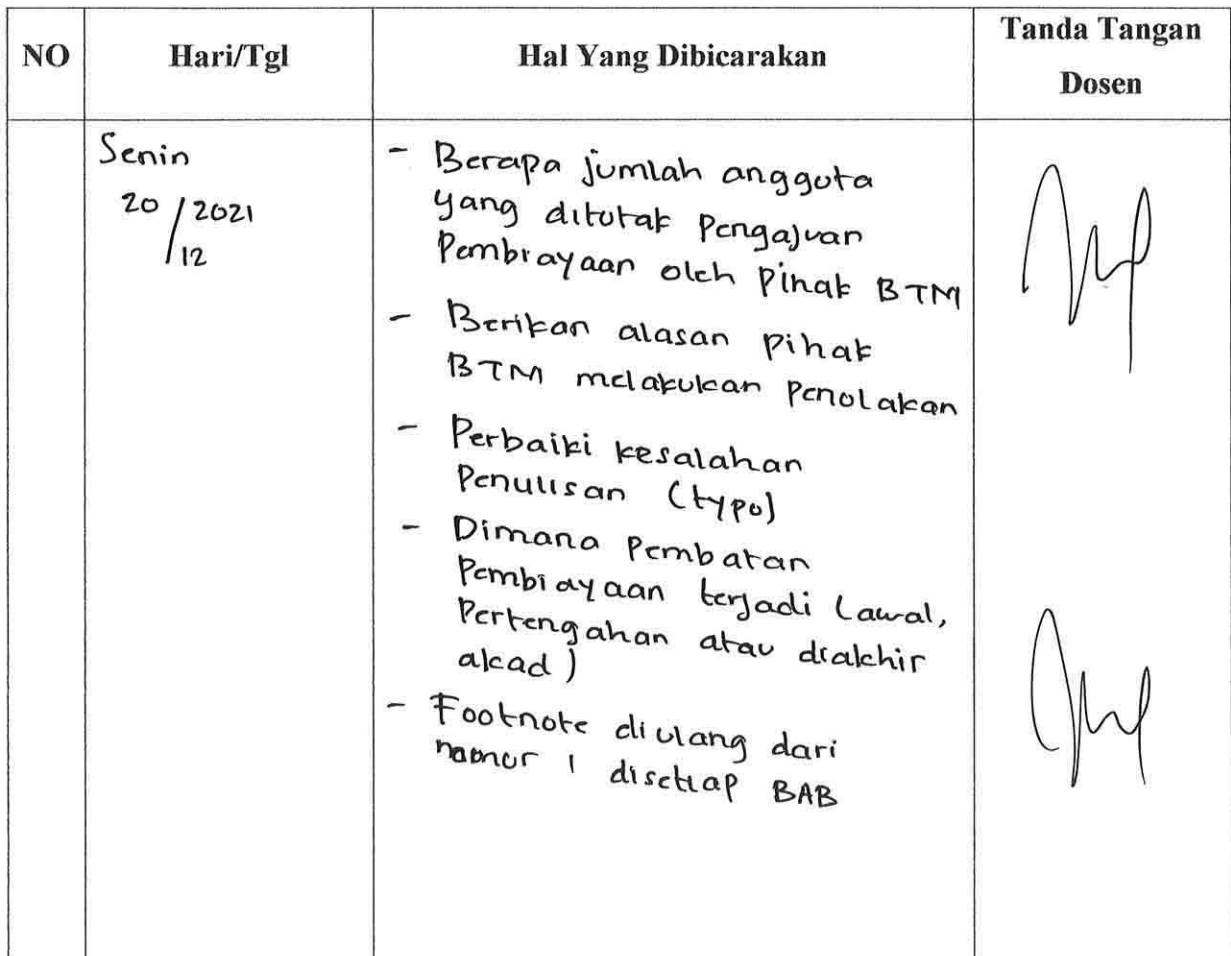 NO
Hari/Tgl
Hal Yang Dibicarakan
Tanda Tangan
Dosen
Senin
20/2021
/12
- Berapa jumlah anggota
yang ditolak Pengajuan
Pembiayaan oleh Pihak BTM
- Berikan alasan pihak
BTM melakukan penolakan
- Perbaiki kesalahan
Penulisan (typo)
- Dimana Pembatan
Pembiayaan terjadi (awal,
Pertengahan atau diakhir
akad)
- Footnote diulang dari
nomor 1 disetiap BAB